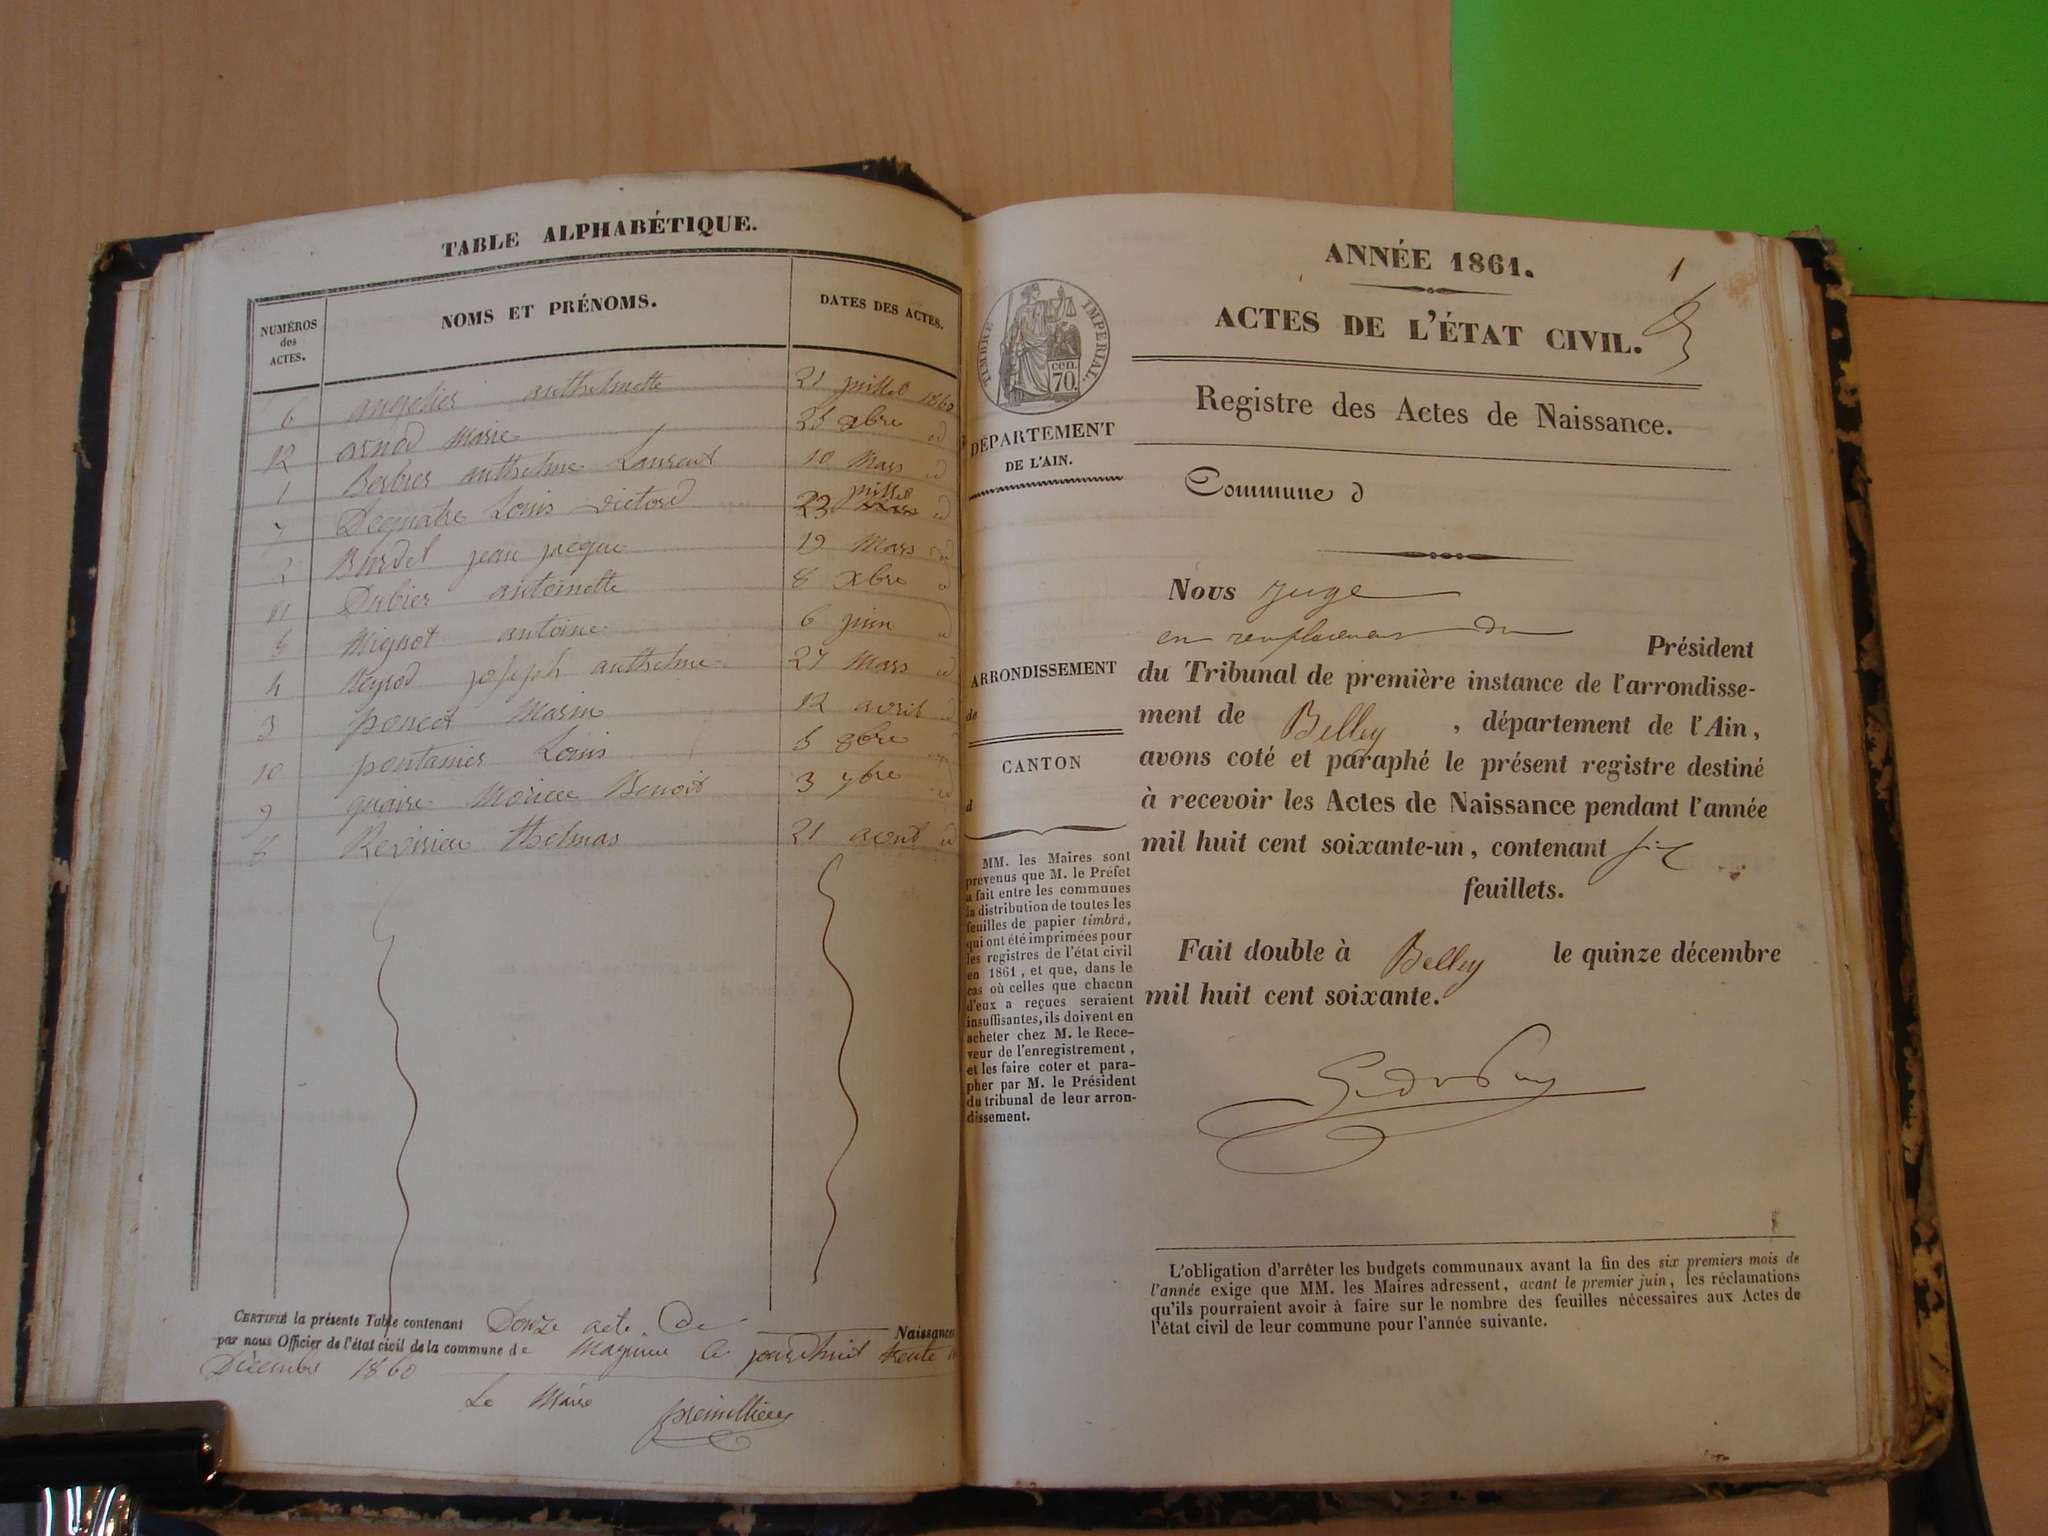 TABLE ALPHABÉTIQUE.
NUMÉROS
des
ACTES.
NOMS ET PRÉNOMS.
DATES DES ACTES.
6 angelier anthelmette 21 juillet 1860
12 Marie 25 xbre id
1 anthelme Laurent 10 Mars id
7 Louis victord juillet
23 id
2 Burdel jean jacque 19 Mars id
11 Dubier antoinette 8 xbre id
5 Mignot antoine 6 juin id
4 joseph anthelme 27 Mars id
3 poncet Marin 12 avril id
10 pontanier Louis 5 8bre
9 quaire Benoit 3 7bre id
8 thelmas 21 aout id
CERTIFIÉ la présente Table contenant Douze acte De Naissance
par nous Officier de l'état civil de la commune de le jourdhuit trente
Décembre 1860
Le Maire
ANNÉE 1861.
1
ACTES DE L'ÉTAT CIVIL.
Registre des Actes de Naissance.
TIMBRE IMPÉRIAL.
CEN.
70.
DÉPARTEMENT
DE L'AIN.
ARRONDISSEMENT
de
CANTON
d
MM. les Maires sont
prévenus que M. le Préfet
a fait entre les communes
la distribution de toutes les
feuilles de papier timbré,
qui ont été imprimées pour
les registres de l'état civil
en 1861, et que, dans le
cas où celles que chacun
d'eux a reçues seraient
insuffisantes, ils doivent en
acheter chez M. le Rece-
veur de l'enregistrement,
et les faire coter et para-
pher par M. le Président
du tribunal de leur arron-
dissement.
Commune d
Nous Juge
en remplacement du Président
du Tribunal de première instance de l'arrondisse-
ment de Belley, département de l'Ain,
avons coté et paraphé le présent registre destiné
à recevoir les Actes de Naissance pendant l'année
mil huit cent soixante-un, contenant six
feuillets.
Fait double à Belley le quinze décembre
mil huit cent soixante.
L'obligation d'arrêter les budgets communaux avant la fin des six premiers mois de
l'année exige que MM. les Maires adressent, avant le premier juin, les réclamations
qu'ils pourraient avoir à faire sur le nombre des feuilles nécessaires aux Actes de
l'état civil de leur commune pour l'année suivante.